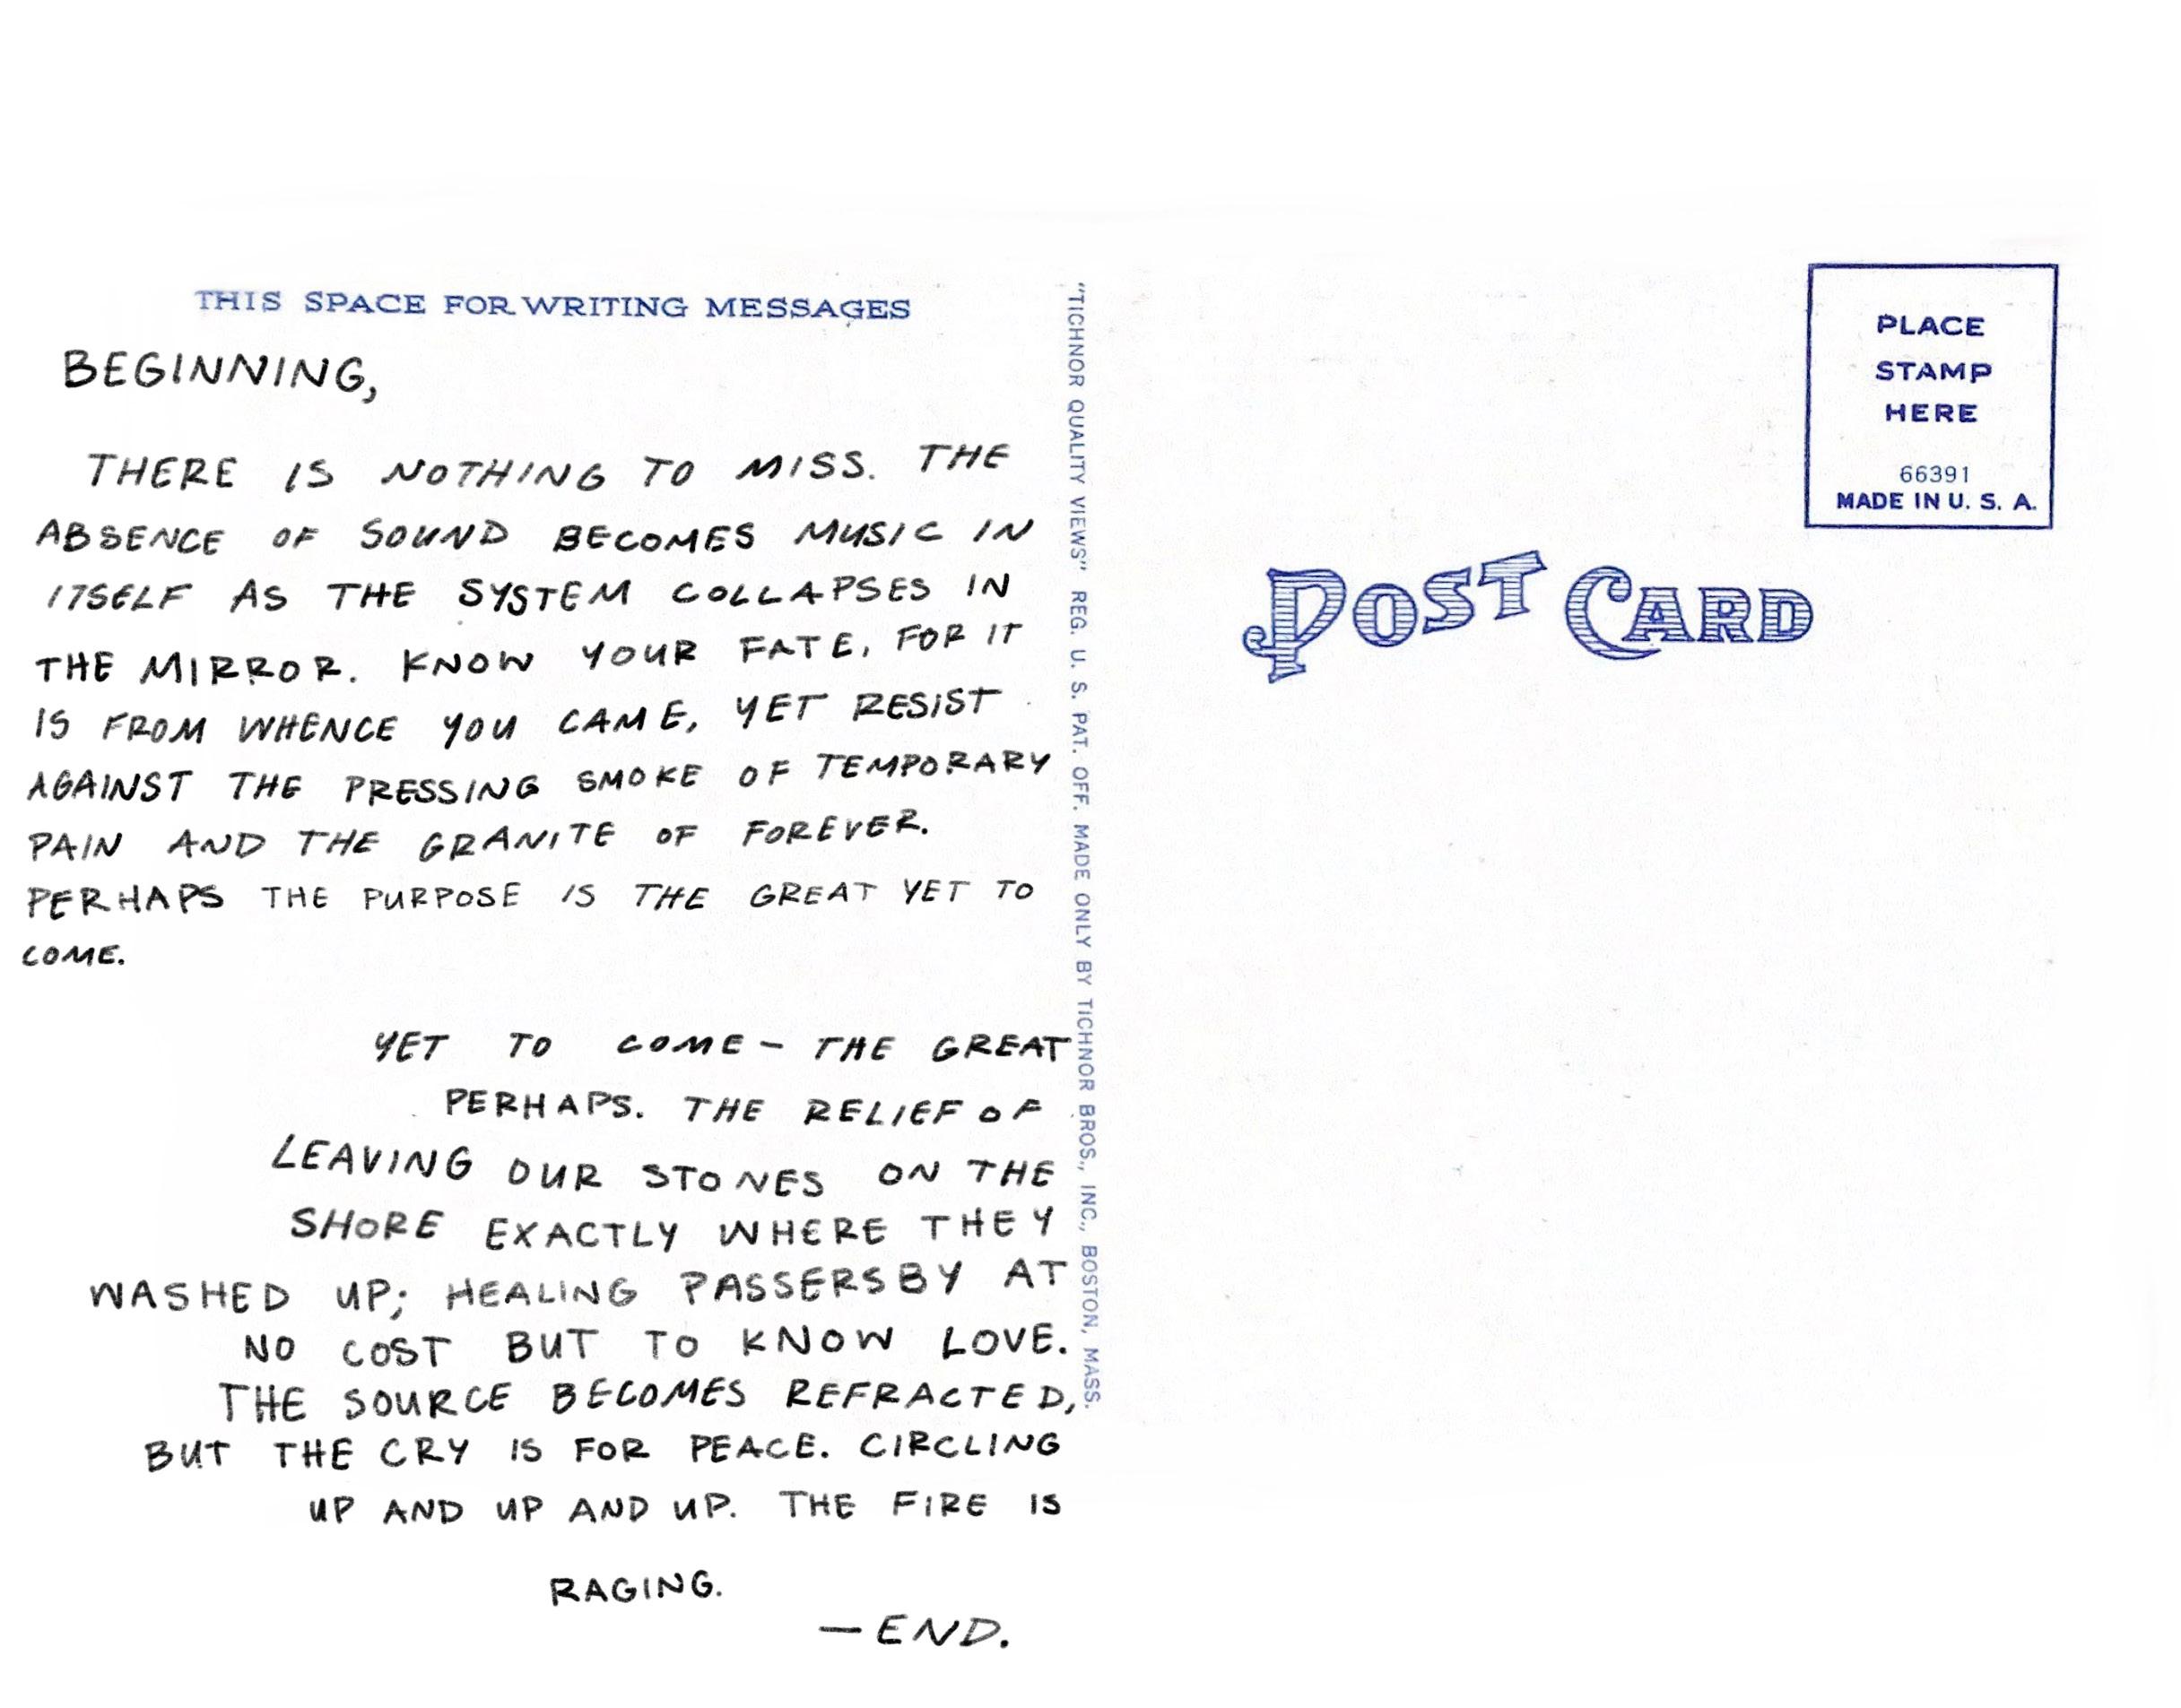 THIS SPACE FOR WRITING MESSAGES
BEGINNING,
THERE IS NOTHING TO MISS. THE
ABSENCE OF SOUND BECOMES MUSIC IN
ITSELF AS THE SYSTEM COLLAPSES IN
THE MIRROR. KNOW YOUR FATE, FOR IT
IS FROM WHENCE YOU CAME, YET RESIST
AGAINST THE PRESSING SMOKE OF TEMPORARY
PAIN AND THE GRANITE OF FOREVER.
PERHAPS THE PURPOSE IS THE GREAT YET TO
COME.
YET TO COME – THE GREAT
PERHAPS. THE RELIEF OF
LEAVING OUR STONES ON THE
SHORE EXACTLY WHERE THEY
WASHED UP; HEALING PASSERSBY AT
NO COST BUT TO KNOW LOVE.
THE SOURCE BECOMES REFRACTED,
BUT THE CRY IS FOR PEACE. CIRCLING
UP AND UP AND UP. THE FIRE IS
RAGING.
— END.
"TICHNOR QUALITY VIEWS" REG. U. S. PAT. OFF. MADE ONLY BY TICHNOR BROS., INC., BOSTON, MASS.
PLACE
STAMP
HERE
66391
MADE IN U. S. A.
POST CARD